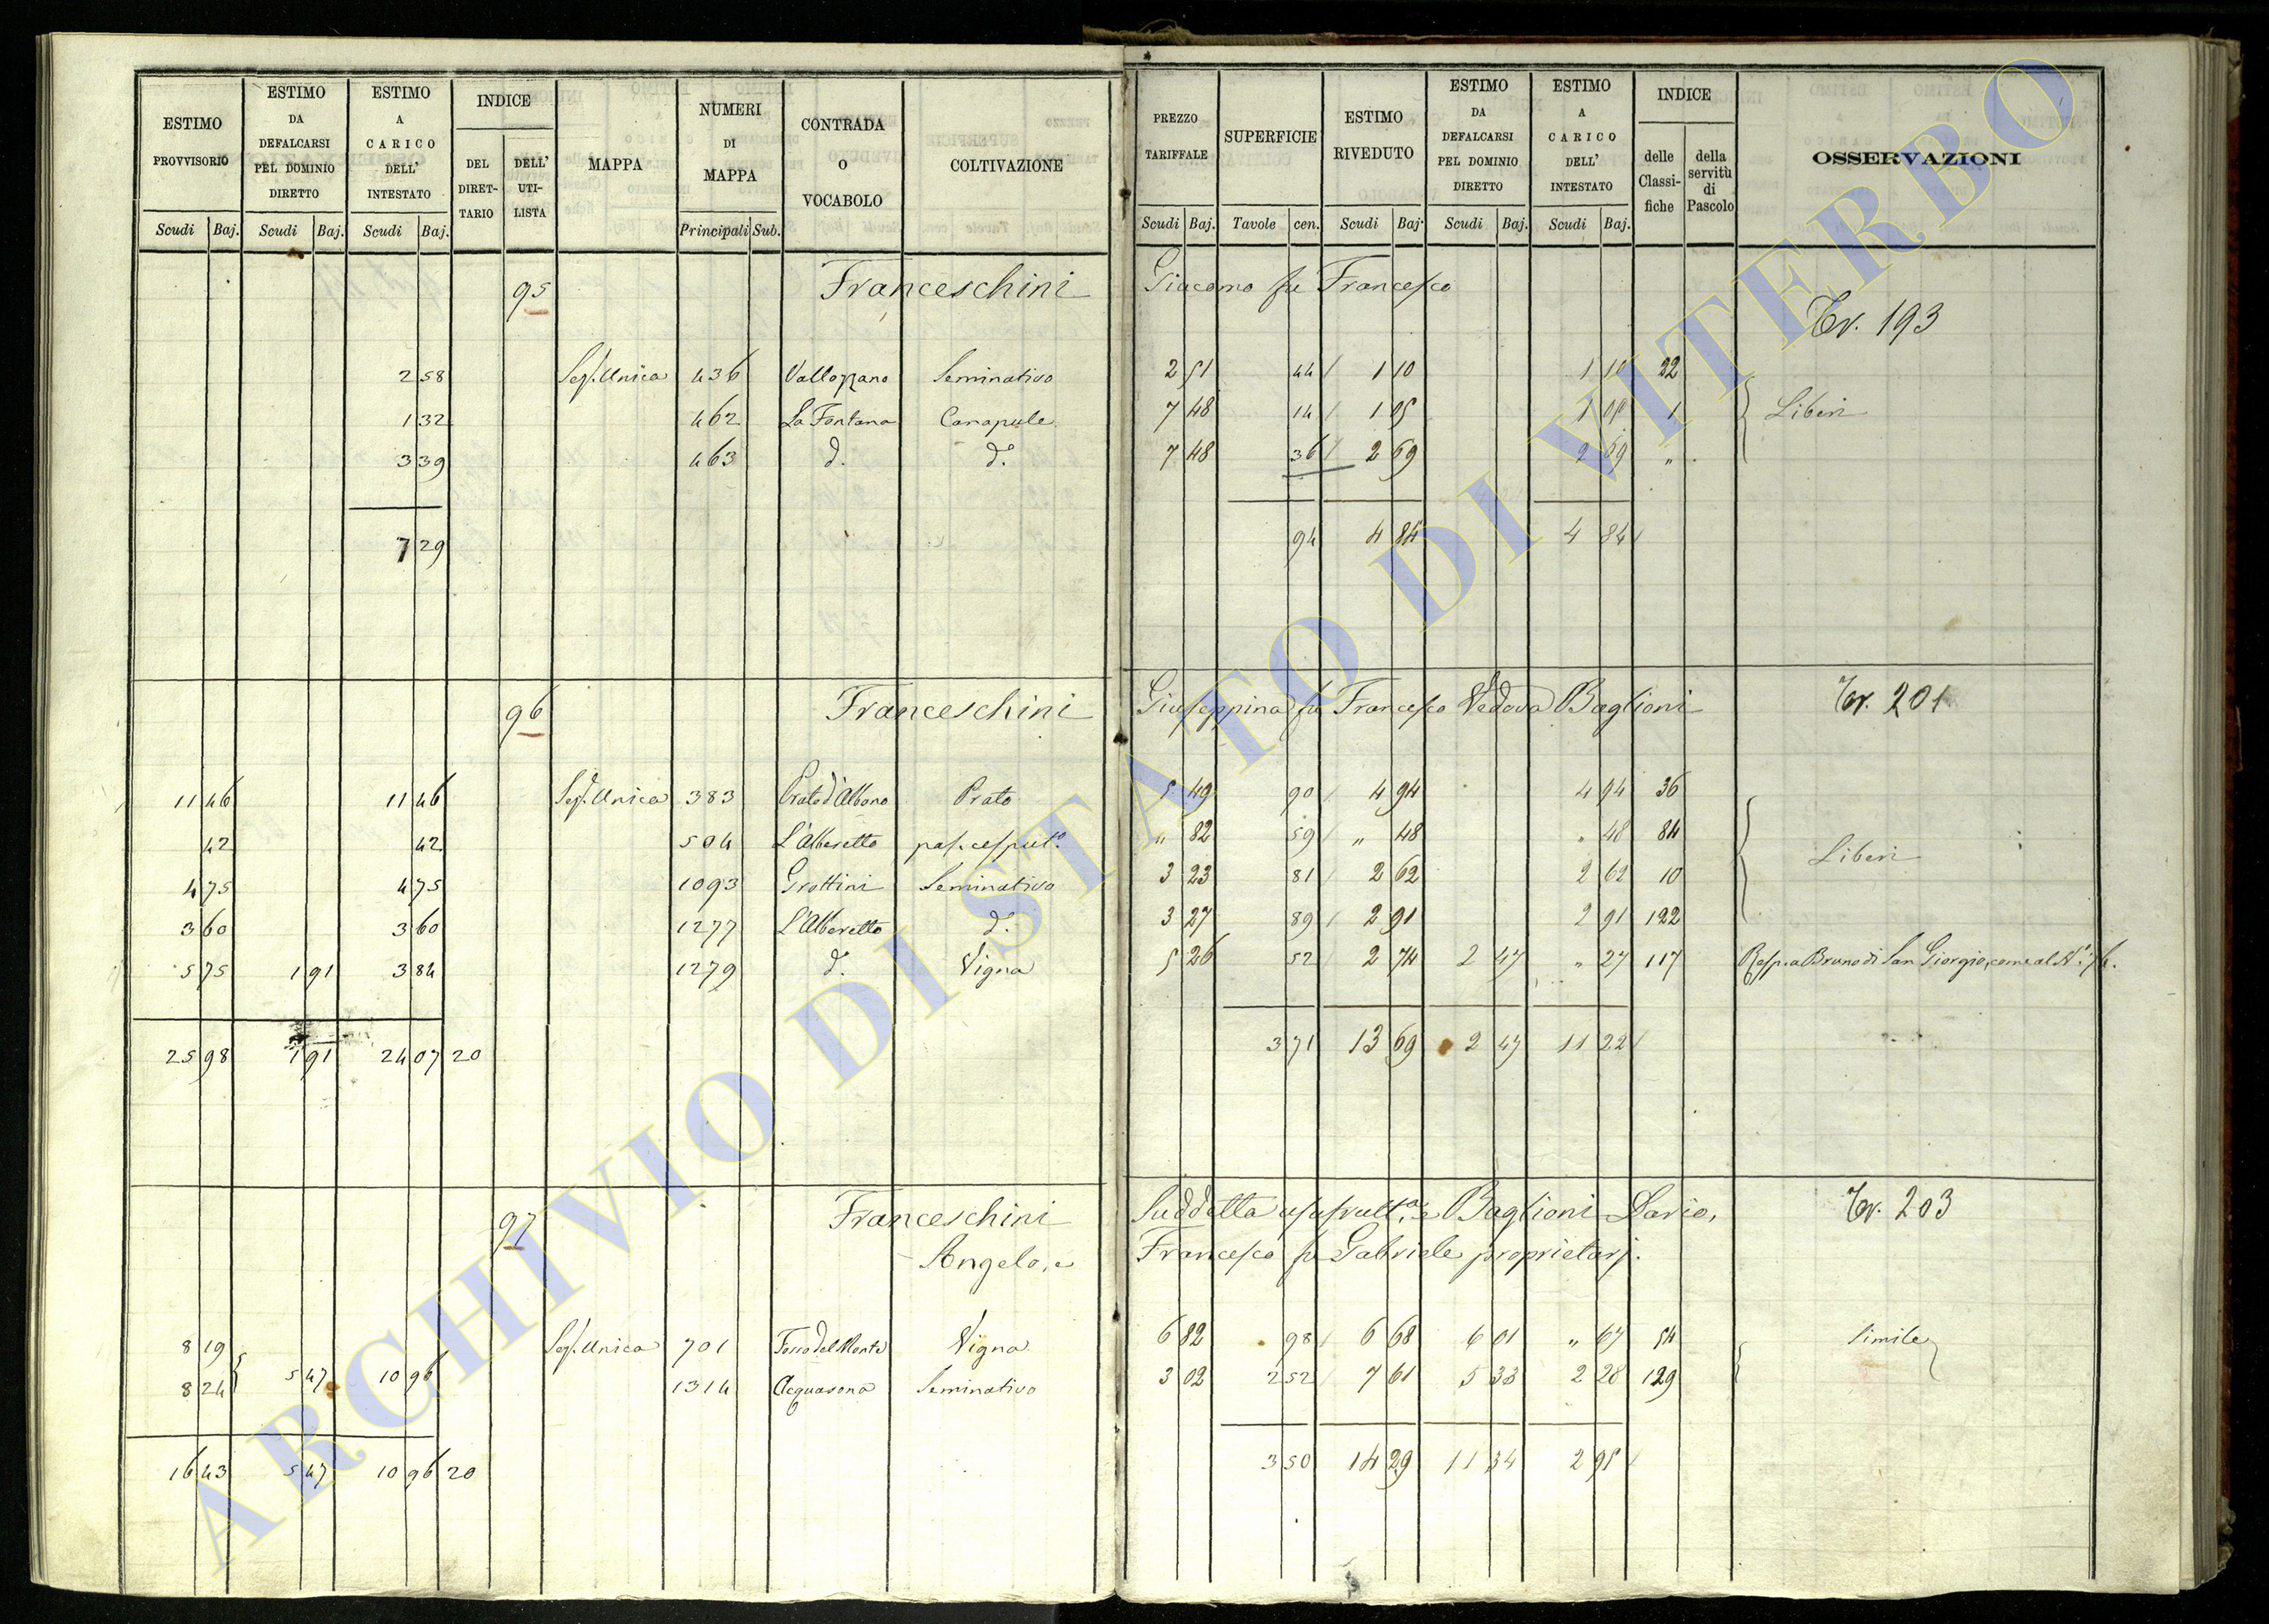 ESTIMO PROVVISORIO | ESTIMO DA DEFALCARSI PEL DOMINIO DIRETTO | ESTIMO A CARICO DELL' INTESTATO | INDICE DEL DIRETTARIO | DELL' UTILISTA | MAPPA | NUMERI DI MAPPA | CONTRADA O VOCABOLO | COLTIVAZIONE
Scudi Baj. Scudi Baj. Scudi Baj. Principali Sub.
PREZZO TARIFFALE | SUPERFICIE | ESTIMO RIVEDUTO | ESTIMO DA DEFALCARSI PEL DOMINIO DIRETTO | ESTIMO A CARICO DELL' INTESTATO | INDICE delle Classifiche | della servitù di Pascolo | OSSERVAZIONI
Scudi Baj. Tavole cen. Scudi Baj. Scudi Baj. Scudi Baj.
95 Franceschini Giacomo fu Francesco
Tr. 193
2 58 Sez. Unica 436 Vallozzano Seminativo 2 51 44 1 10 1 10 22
1 32 462 La Fontana Canapule 7 48 14 1 05 1 05 1 Liberi
3 39 463 d. d.° 7 48 36 2 69 2 69 "
7 29 94 4 84 4 84
96 Franceschini Giuseppina fu Francesco Vedova Baglioni Tr. 201
11 46 11 46 Sez. Unica 383 Prato d'Albano Prato 5 49 90 4 94 4 94 36
42 42 504 L'Alberetto pas. cesput.° " 82 59 " 48 " 48 84
4 75 4 75 1093 Grottini Seminativo 3 23 81 2 62 2 62 10 Liberi
3 60 3 60 1277 L'Alberetto d.° 3 27 89 2 91 2 91 122
5 75 1 91 3 84 1279 d. Vigna 5 26 52 2 74 2 47 " 27 117 Risp. a Bruno di San Giorgio, come al N.°
25 98 1 91 24 07 20 3 71 13 69 2 47 11 22
97 Franceschini Suddetta usufrutt.a, e Baglioni Dario, Tr. 203
Angelo, e Francesco fu Gabriele proprietarj.
8 19 Sez. Unica 701 Fosso del Monte Vigna 6 82 98 6 68 6 01 " 67 54 Simile
8 24 5 47 10 96 1314 Acquasona Seminativo 3 02 2 52 7 61 5 33 2 28 129
16 43 5 47 10 96 20 3 50 14 29 11 34 2 95
ARCHIVIO DI STATO DI VITERBO